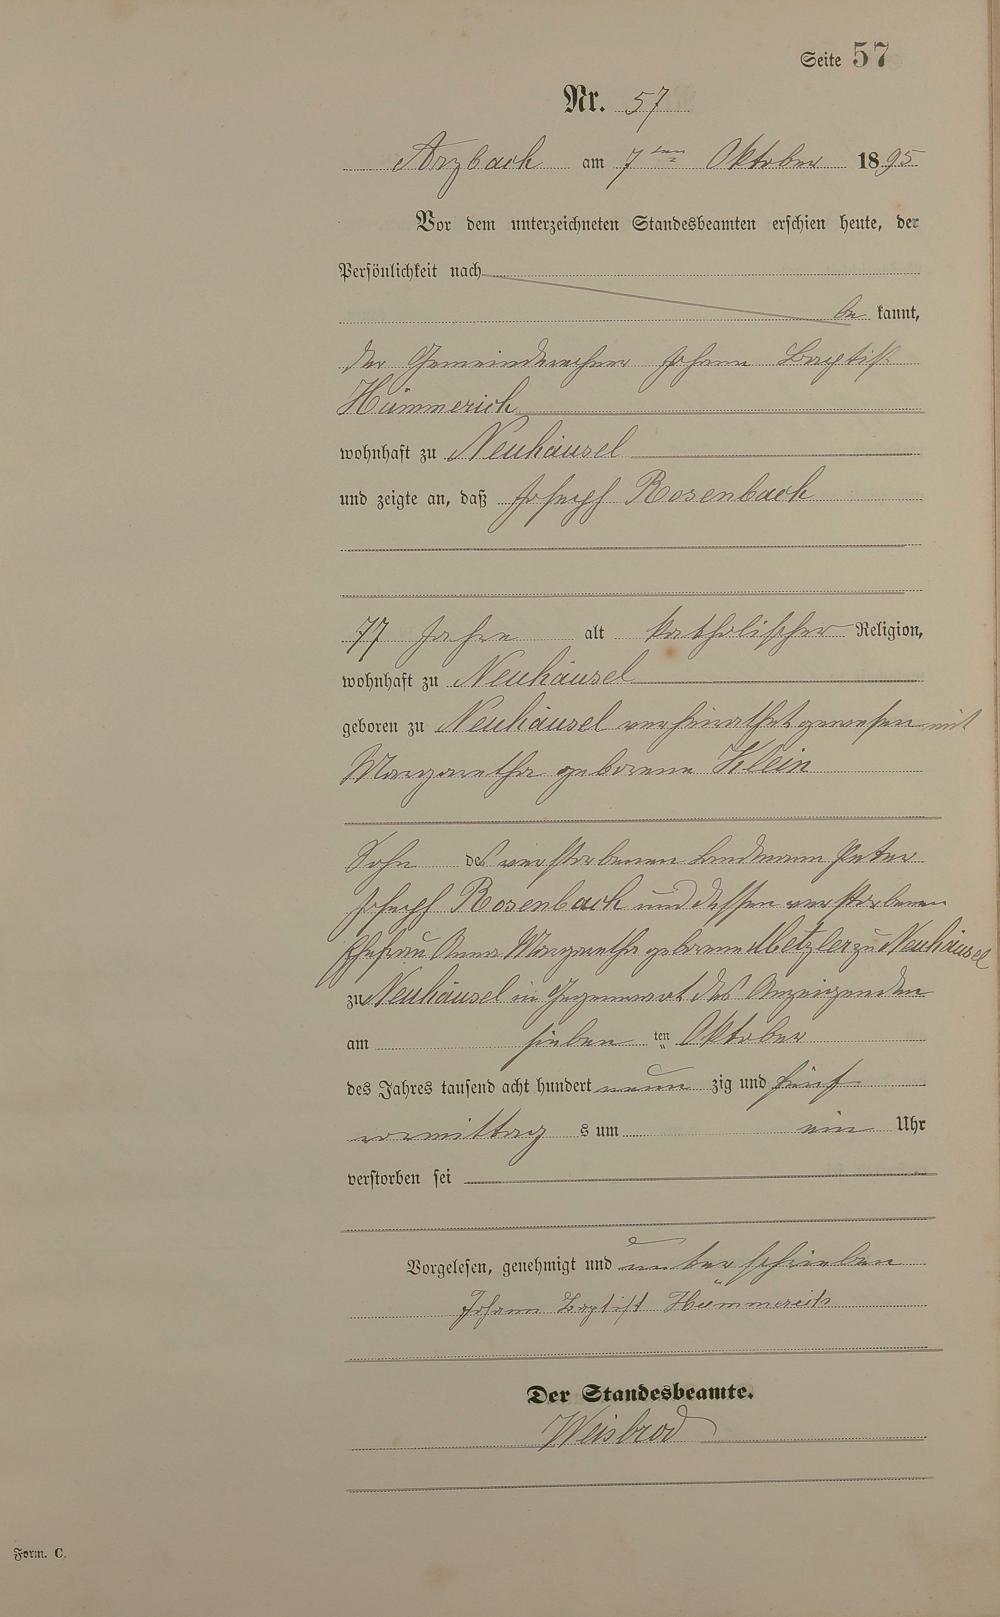 Seite 57
Nr. 57
Arzbach am 7ten Oktober 1895
Vor dem unterzeichneten Standesbeamten erschien heute, der
Persönlichkeit nach
be kannt,
der Gemeinderechner Johann Baptist
Hümmerich
wohnhaft zu Neuhäusel
und zeigte an, daß Joseph Rosenbach
77 Jahre alt katholischer Religion,
wohnhaft zu Neuhäusel
geboren zu Neuhäusel verheirathet gewesen mit
Margaretha geborene Klein
Sohn des verstorbenen Landmann Peter
Joseph Rosenbach und dessen verstorbenen
Ehefrau Anna Margaretha geborene Metzler zu Neuhäusel
zu Neuhäusel in Gegenwart des Anzeigenden
am sieben ten Oktober
des Jahres tausend acht hundert neun zig und fünf
vormittag s um ein Uhr
verstorben sei
Vorgelesen, genehmigt und unterschrieben
Johann Baptist Hümmerich
Der Standesbeamte.
Weisbrod
Form. C.